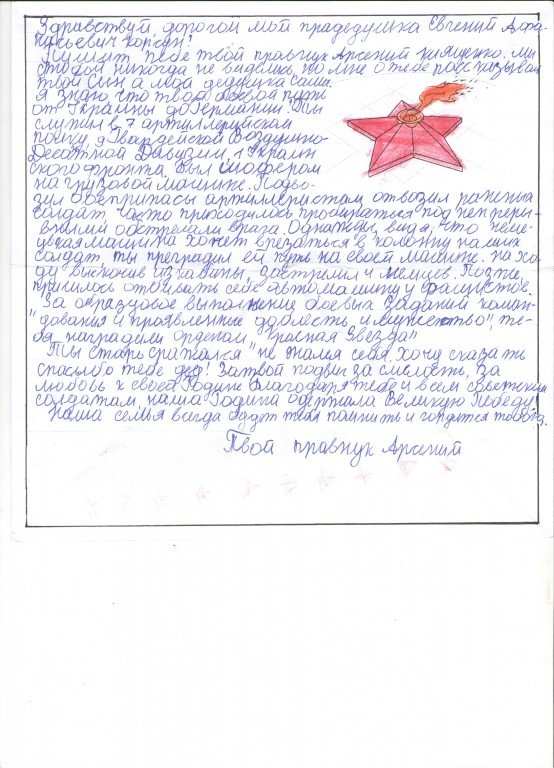 Здравствуй, дорогой мой прадедушка Евгений Афа-
насьевич Корсун!
Пишет тебе твой правнук Арсений Мы
с тобой никогда не виделись, но мне о тебе рассказывал
твой сын, а мой дедушка Саша.
Я знаю, что твой боевой путь
от Украины до Германии. Ты
служил в 7 артиллерийском
полку, Гвардейской Воздушно-
Десантной Дивизии, 1 Украин
ского фронта, был шофером
на грузовой машине. Подво-
зил боеприпасы артиллеристам, отвозил раненых
солдат, часто приходилось пробираться под непреры-
вными обстрелами врага. Однажды, видя, что неме-
цкая машина хочет врезаться в колонну наших
солдат, ты преградил ей путь на своей машине. На хо-
ду выскочив из кабины, застрелил 4 немцев. Позже,
пришлось отбивать себе автомашину у фашистов.
"За образцовое выполнение боевых заданий коман-
дования и проявленные доблесть и мужество", те-
бя наградили орденом "Красная Звезда"
Ты старь сражался "не жалея себя. Хочу сказать
спасибо тебе дед! За твой подвиг за смелость, за
любовь к своей Родине. Благодаря тебе и всем советским
солдатам, наша Родина одержала Великую Победу!
Наша семья всегда будет тебя помнить и гордится тобой.
Твой правнук Арсений